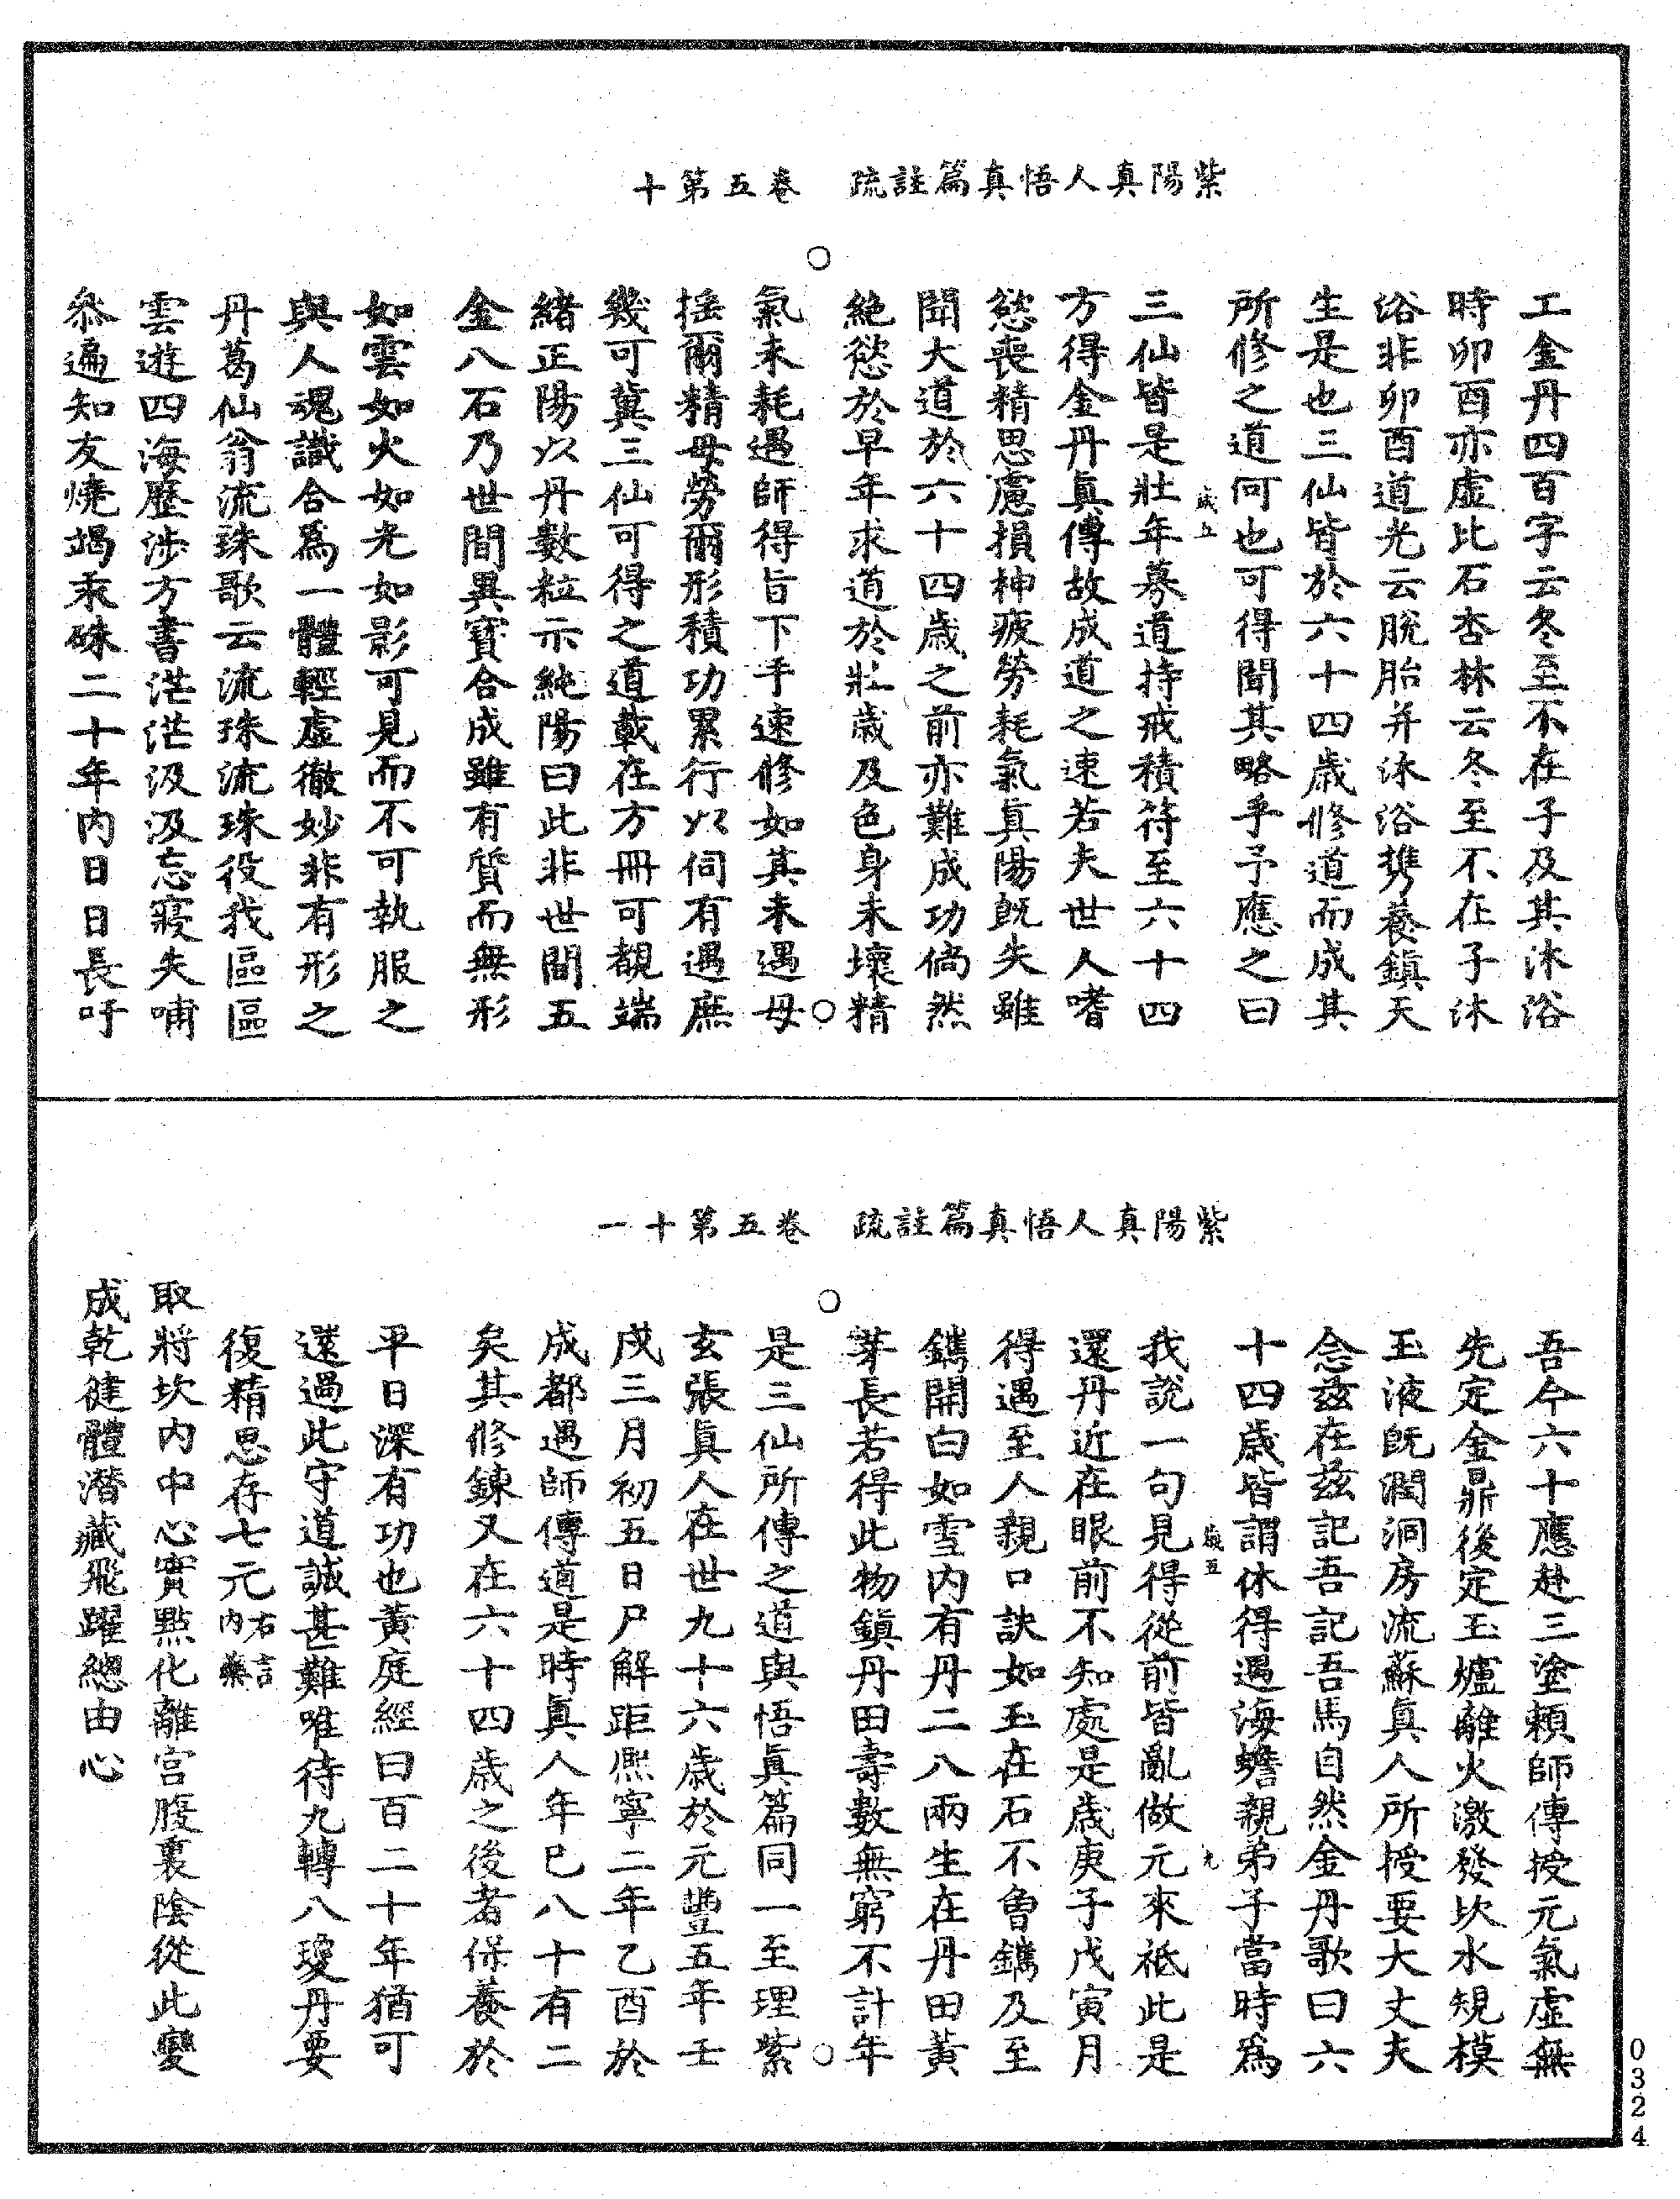 紫陽真人悟真篇註疏　卷五第十
工金丹四百字云冬至不在子及其沐浴
時卯酉亦虛比石杏林云冬至不在子沐
浴非卯酉道光云脫胎并沐浴携養鎮天
生是也三仙皆於六十四歲修道而成其
所修之道何也可得聞其略乎予應之曰
三仙皆是壯年慕道持戒積符至六十四
方得金丹真傳故成道之速若夫世人嗜
慾喪精思慮損神疲勞耗氣真陽既失雖
聞大道於六十四歲之前亦難成功倘然
絕慾於早年求道於壯歲及色身未壞精
氣未耗遇師得旨下手速修如其未遇毋
搖爾精毋勞爾形積功累行以伺有遇庶
幾可冀三仙可得之道載在方冊可覩端
緒正陽以丹數粒示純陽曰此非世間五
金八石乃世間異寶合成雖有質而無形
如雲如火如光如影可見而不可執服之
與人魂識合爲一體輕虛徹妙非有形之
丹葛仙翁流珠歌云流珠流珠役我區區
雲遊四海歷涉方書茫茫汲汲忘寢失哺
叅遍知友燒竭汞硃二十年內日日長吁
紫陽真人悟真篇註疏　卷五第十一
吾今六十應赴三塗賴師傳授元氣虛無
先定金鼎後定玉爐離火激發坎水規模
玉液既潤洞房流蘇真人所授要大丈夫
念茲在茲記吾記吾馬自然金丹歌曰六
十四歲皆謂休得遇海蟾親弟子當時爲
我說一句見得從前皆亂做元來祗此是
還丹近在眼前不知處是歲庚子戊寅月
得遇至人親口訣如玉在石不魯鐫及至
鐫開白如雪內有丹二八兩生在丹田黃
芽長若得此物鎮丹田壽數無窮不計年
是三仙所傳之道與悟真篇同一至理紫
玄張真人在世九十六歲於元豐五年壬
戌三月初五日尸解距熈寧二年乙酉於
成都遇師傳道是時真人年巳八十有二
矣其修鍊又在六十四歲之後者保養於
平日深有功也黃庭經曰百二十年猶可
還過此守道誠甚難唯待九轉八瓊丹要
復精思存七元右言內藥
取將坎內中心實點化離宮腹裏陰從此變
成乾健體潛藏飛躍緫由心
0324